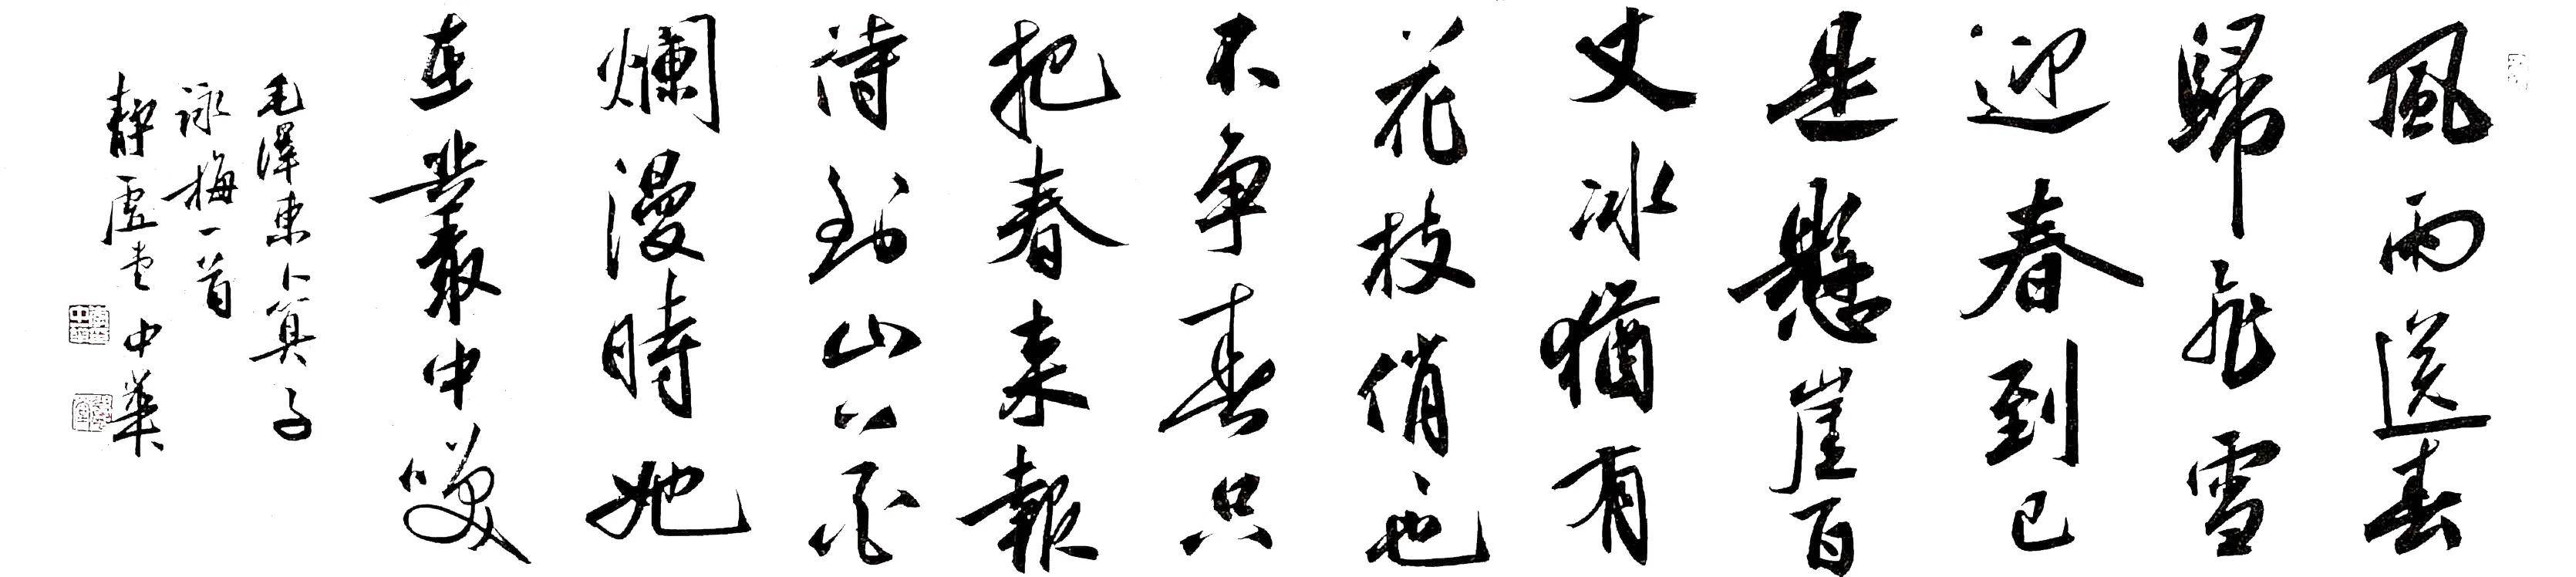 風雨送春
歸飛雪
迎春到已
是懸崖百
丈冰猶有
花枝俏也
不争春只
把春来報
待到山花
爛漫時她
在叢中咲
毛澤東卜算子
詠梅一首
静虚堂中華